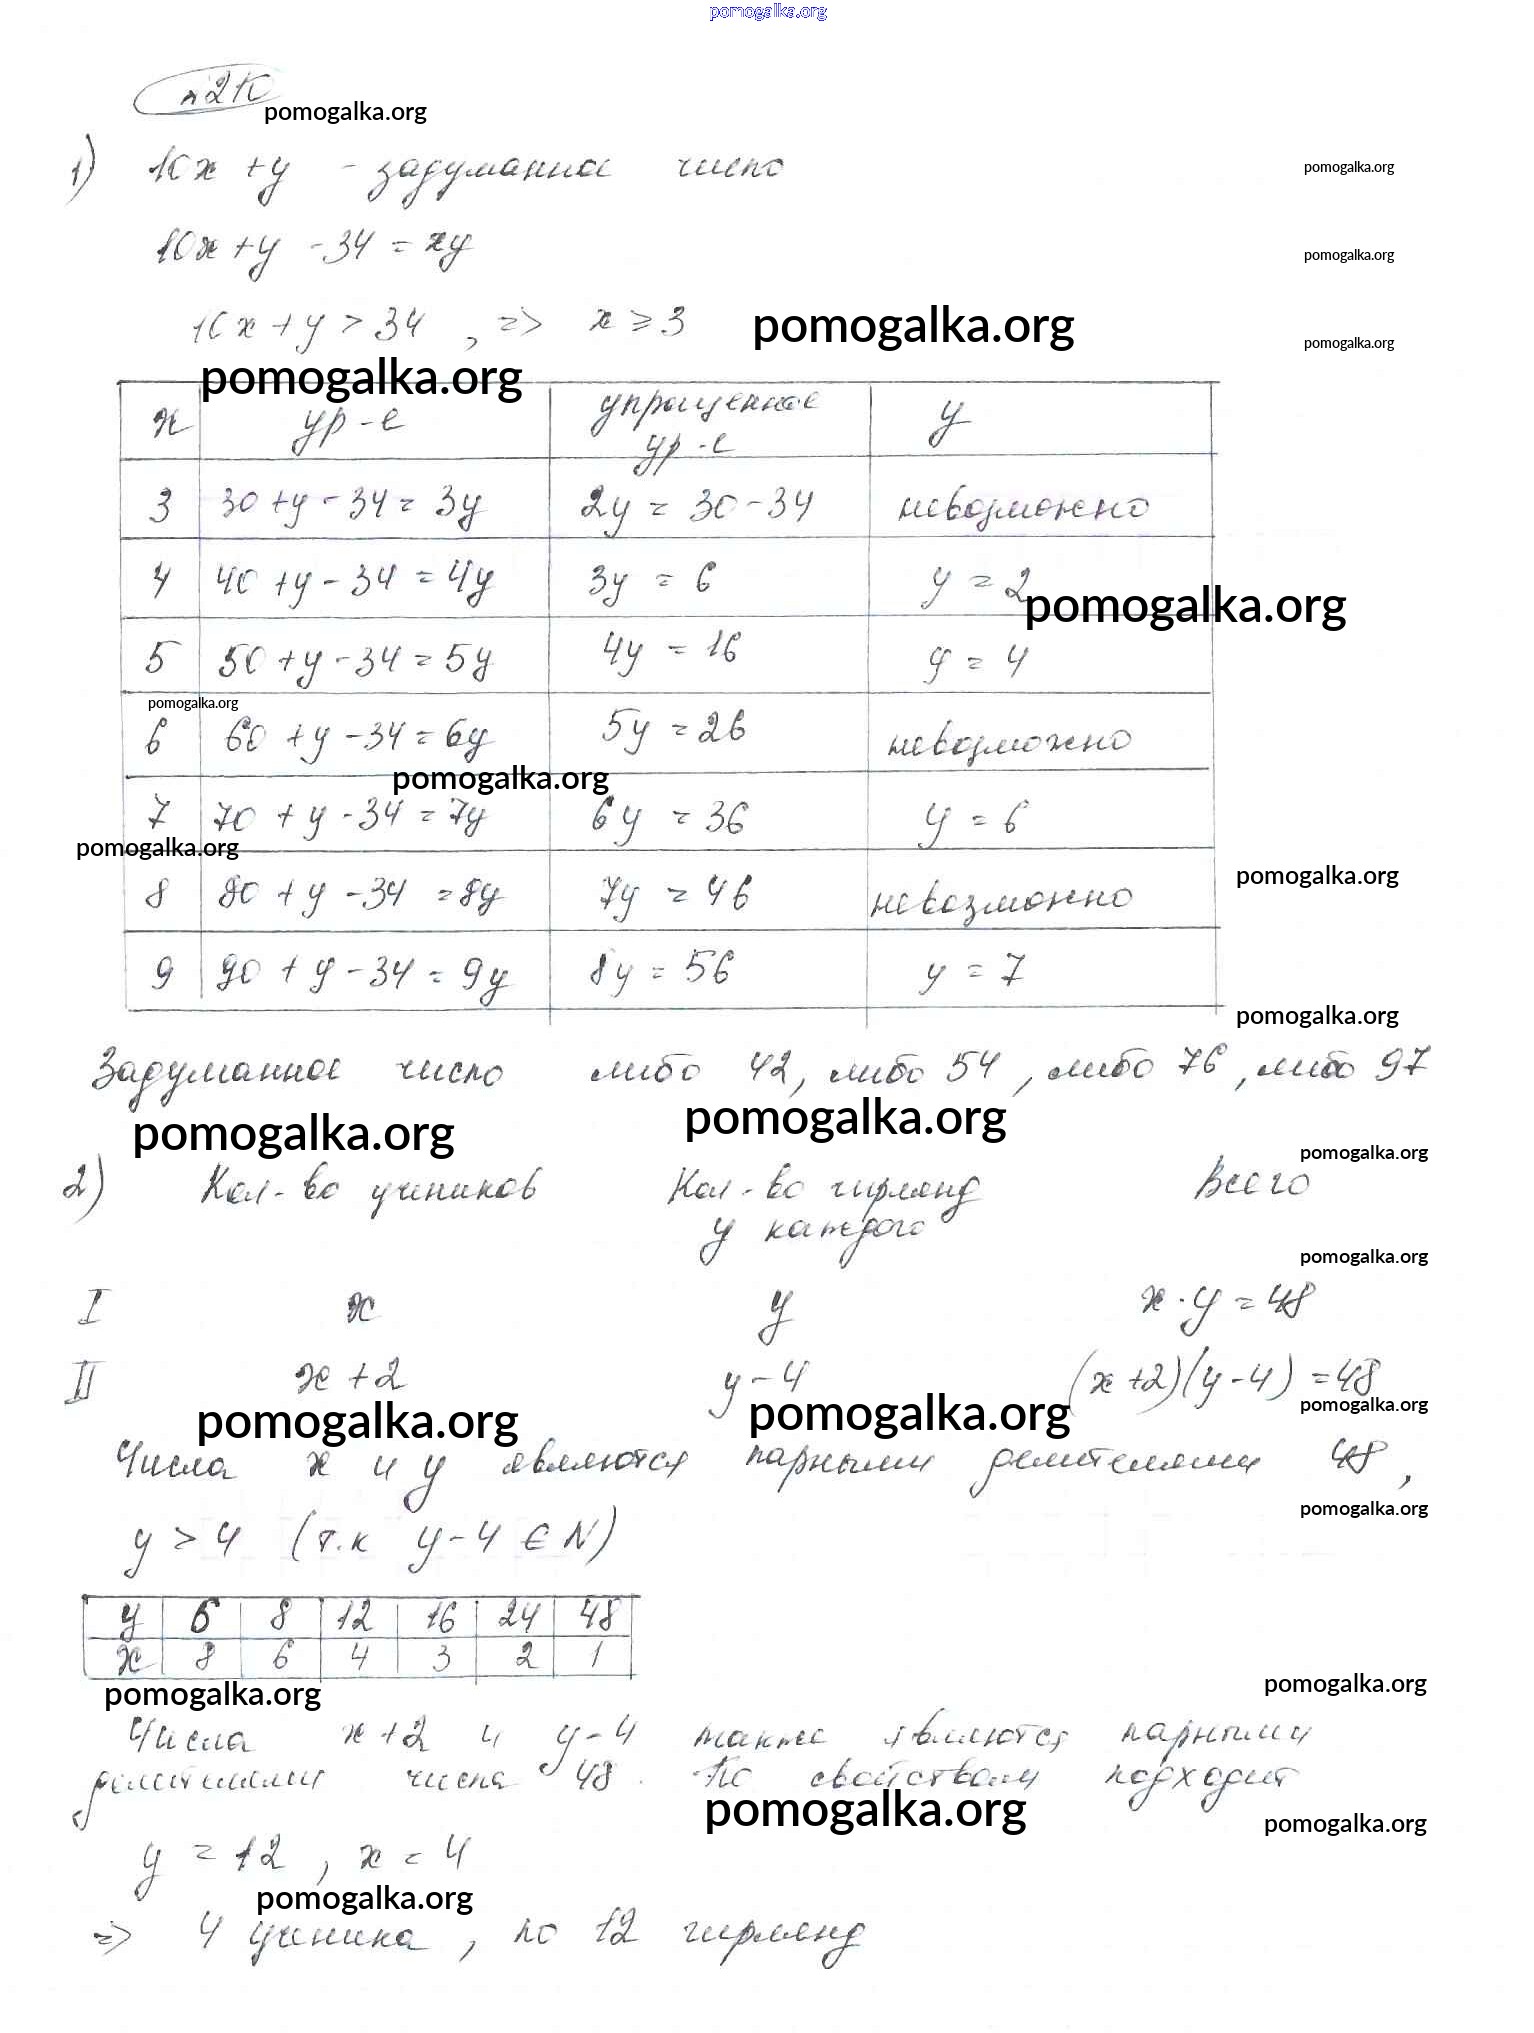 pomogalka.org
№210
pomogalka.org
1) 10x + y - задуманное число
pomogalka.org
10x + y - 34 = xy
pomogalka.org
10x + y > 34 , => x ≥ 3
pomogalka.org
pomogalka.org
pomogalka.org
x ур-е упрощенное ур-е y
3 30 + y - 34 = 3y 2y = 30 - 34 невозможно
4 40 + y - 34 = 4y 3y = 6 y = 2
pomogalka.org
5 50 + y - 34 = 5y 4y = 16 y = 4
pomogalka.org
6 60 + y - 34 = 6y 5y = 26 невозможно
pomogalka.org
7 70 + y - 34 = 7y 6y = 36 y = 6
pomogalka.org
pomogalka.org
8 80 + y - 34 = 8y 7y = 46 невозможно
9 90 + y - 34 = 9y 8y = 56 y = 7
pomogalka.org
Задуманное число либо 42, либо 54, либо 76, либо 97
pomogalka.org
pomogalka.org
pomogalka.org
2) Кол-во учеников Кол-во гирлянд Всего
у каждого
pomogalka.org
I x y x · y = 48
II x + 2 y - 4 (x + 2)(y - 4) = 48
pomogalka.org
pomogalka.org
pomogalka.org
Числа x и y являются парными делителями 48,
pomogalka.org
y > 4 (т.к y - 4 ∈ N)
y 6 8 12 16 24 48
x 8 6 4 3 2 1
pomogalka.org
pomogalka.org
Числа x + 2 и y - 4 также являются парными
делителями числа 48. По свойствам подходит
pomogalka.org
pomogalka.org
y = 12 , x = 4
pomogalka.org
=> 4 ученика, по 12 гирлянд